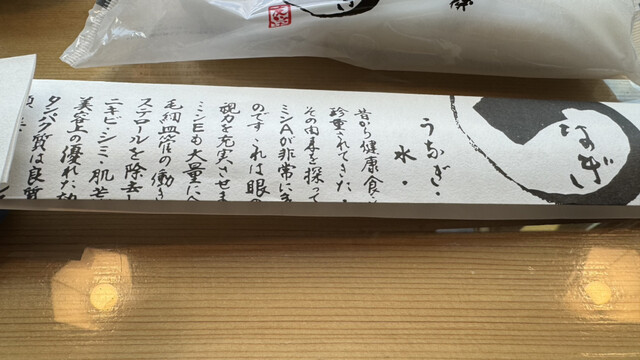 うなぎ
うなぎ・
水・
昔から健康食
珍重されてきた。
その内容を探って
ミンAが非常に多
のです。これは眼の
視力を充実させま
ミンEも大量に
毛細血管の働き
ステロールを除去し
ニキビ・シミ・肌
美容上の優れた
タンパク質は良質